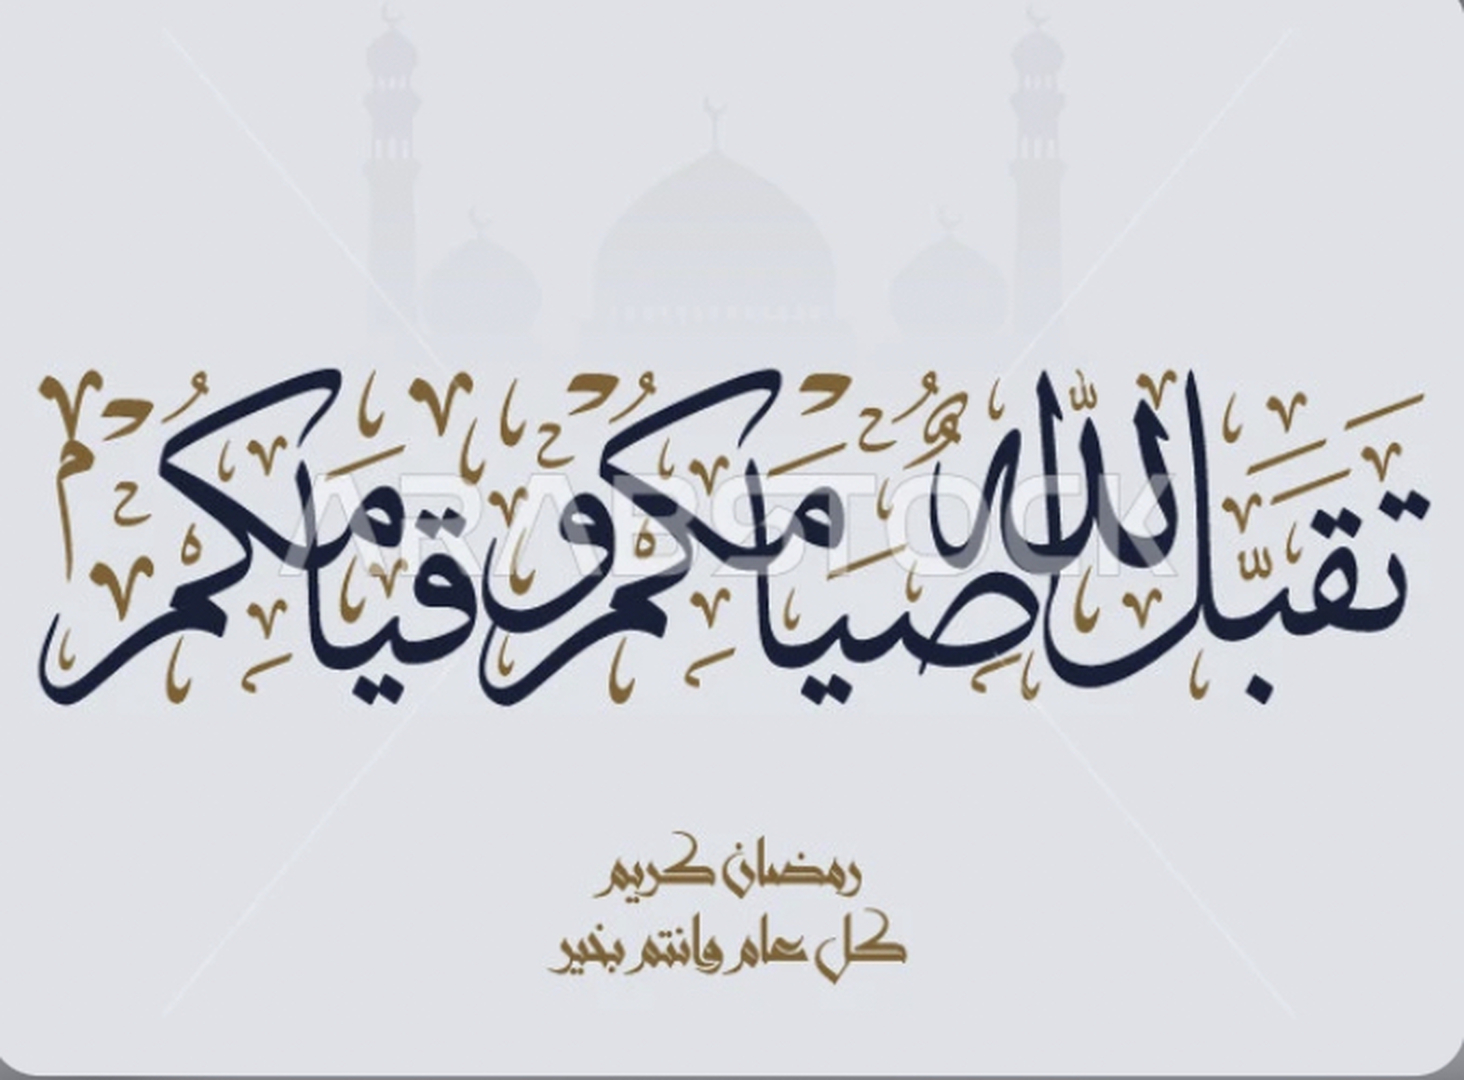 تقبل الله صيامكم وقيامكم
ARABSTOCK
رمضان كريم
كل عام وانتم بخير